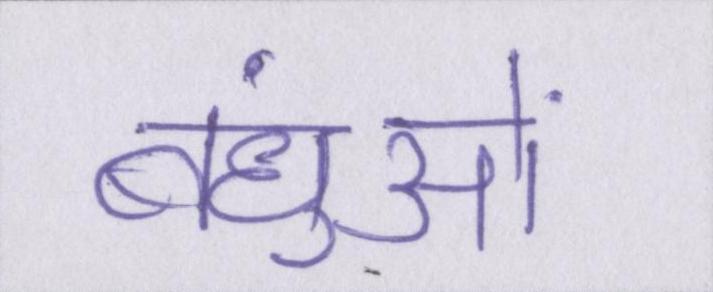 बंधुओं